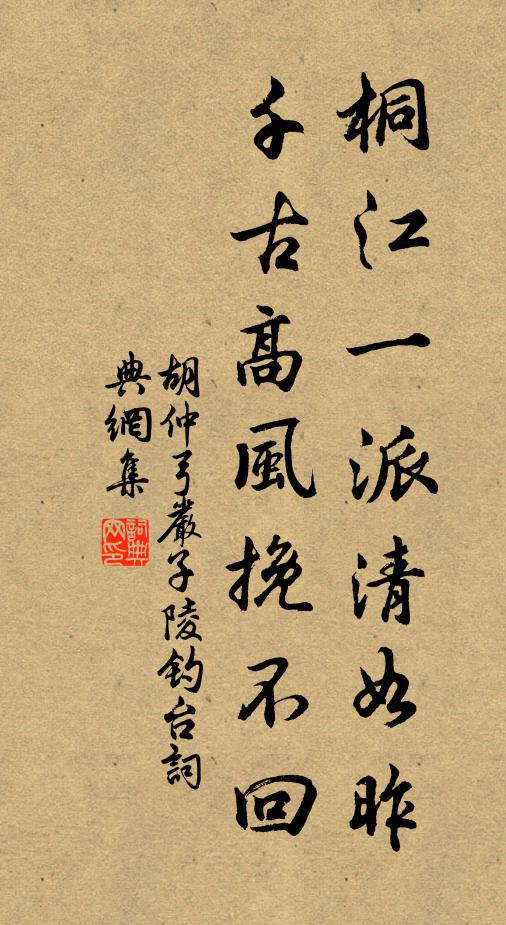 桐江一派清如昨
千古高風挽不回
胡仲弓嚴子陵釣台詞
典網集
詞典網印